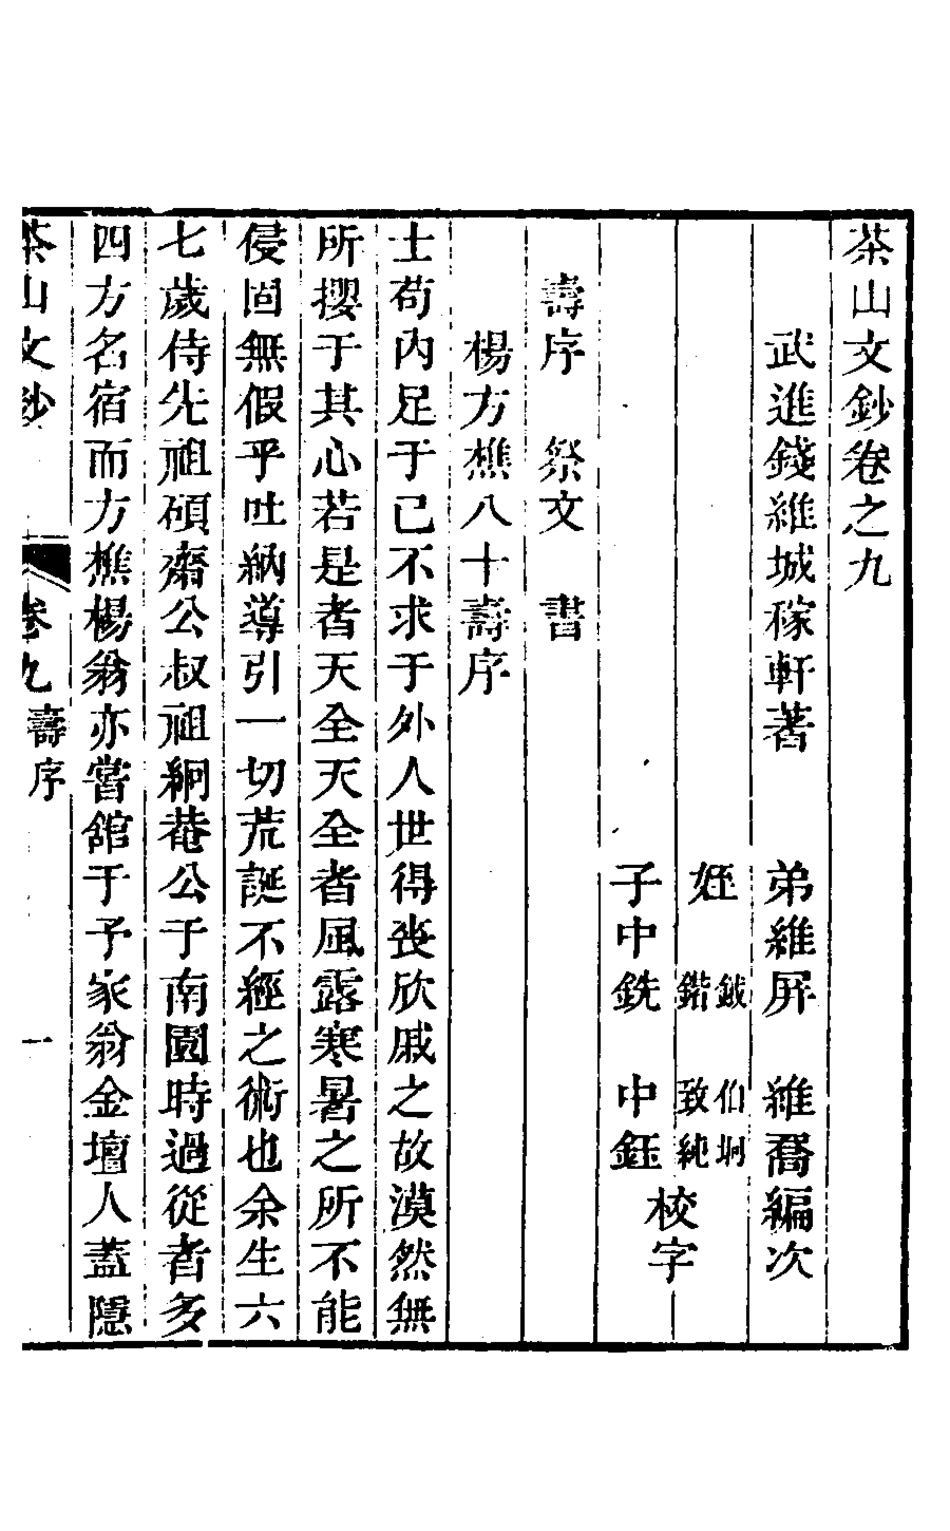 茶山文鈔卷之九
武進錢維城稼軒著 弟維屏 維喬編次
姪 鈸 伯坰
鍇 致純
子中銑 中鈺
校字
壽序 祭文 書
楊方樵八十壽序
士苟內足于已不求于外人世得丧欣戚之故漠然無
所攖于其心若是者天全天全者風露寒暑之所不能
侵固無假乎吐納導引一切荒誕不經之術也余生六
七歲侍先祖碩齋公叔祖絅菴公于南園時過從者多
四方名宿而方樵楊翁亦嘗舘于予家翁金壇人蓋隱
茶山文鈔 卷九 壽序 一